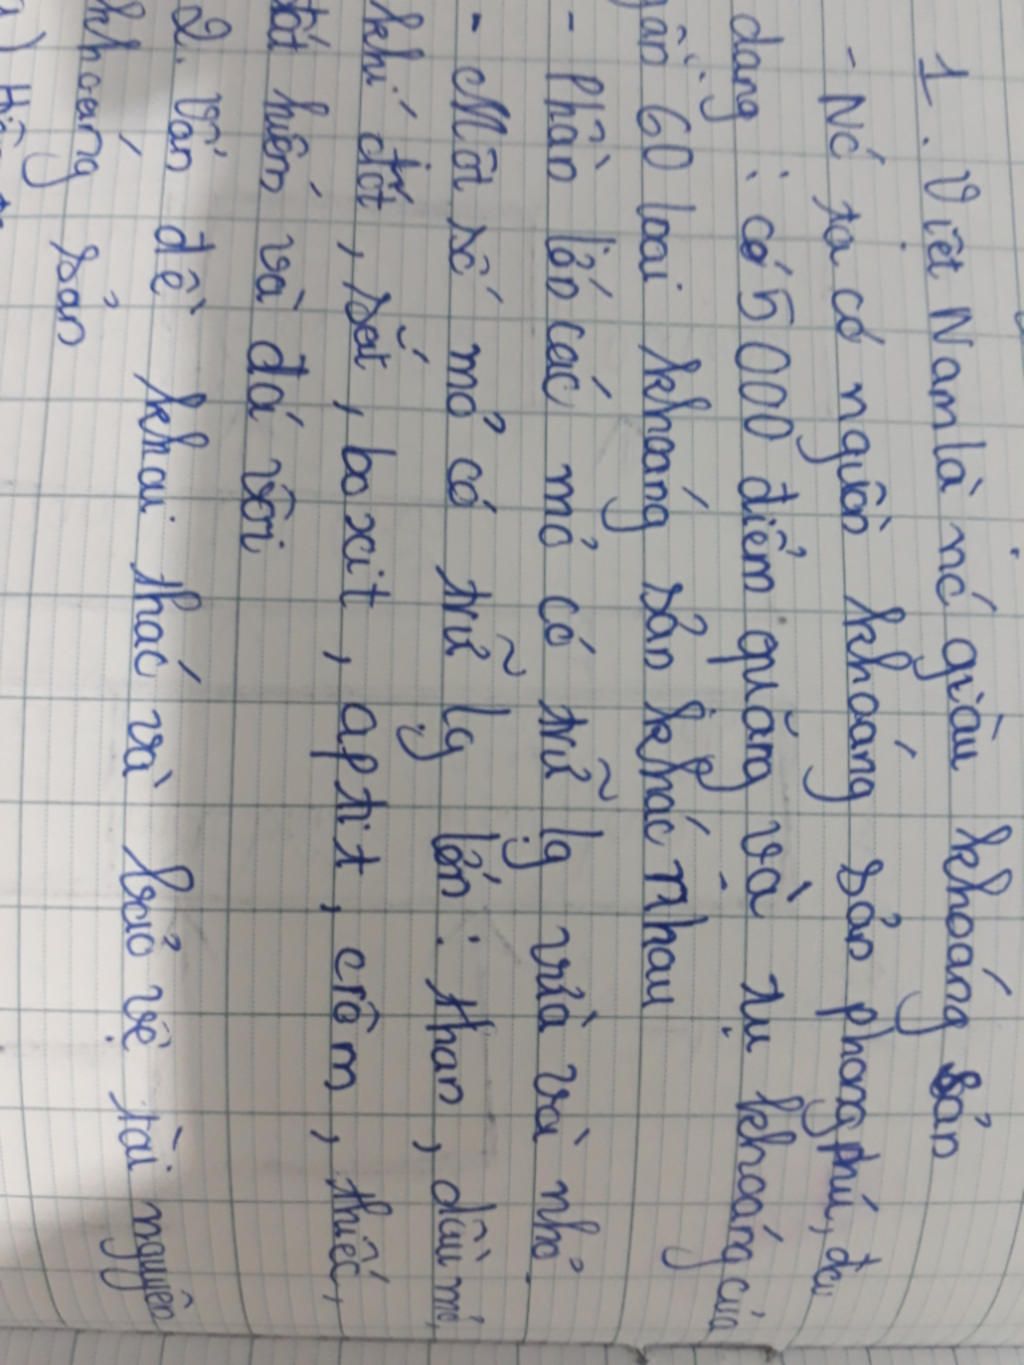 1. Việt Nam là nć giàu khoáng sản
- Nć ta có nguồn khoáng sản phong phú, đa
dạng : có 5000 điểm quặng và tụ khoáng của
gần 60 loại khoáng sản khác nhau
- Phần lớn các mỏ có trữ lg vừa và nhỏ.
- Một số mỏ có trữ lg lớn : than, dầu mỏ,
khí đốt, sắt, boxit, aptit, crôm, thiếc,
đất hiếm và đá vôi
2. Vấn đề khai thác và bảo vệ tài nguyên
khoáng sản